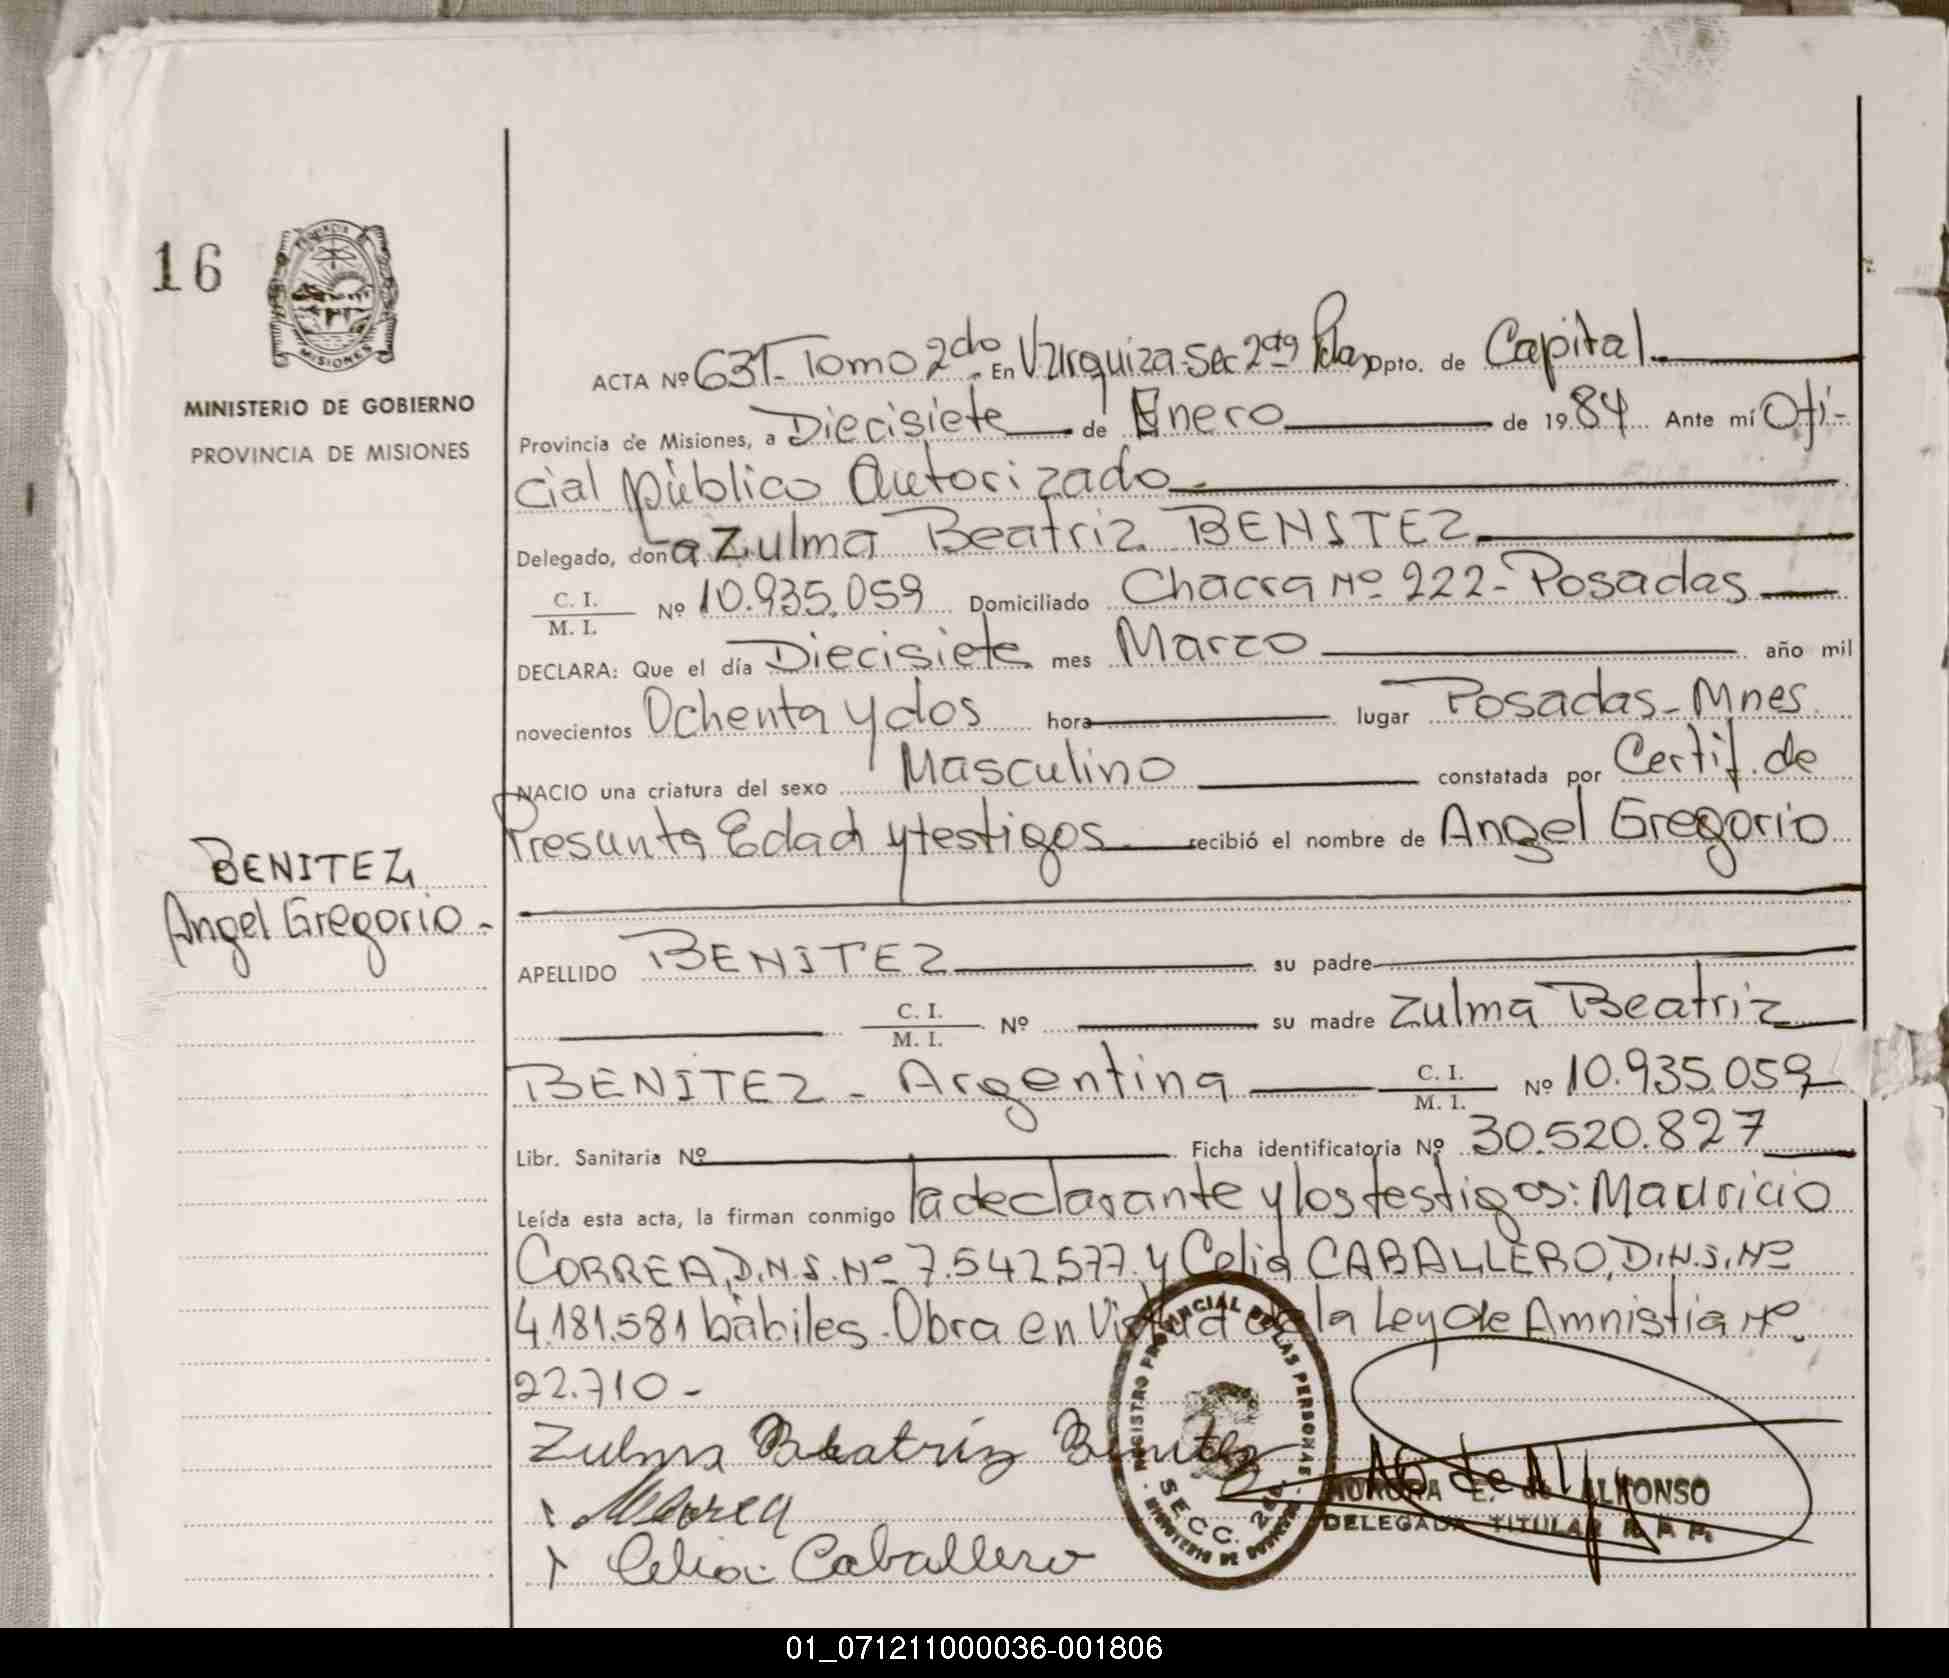 16
PROVINCIA DE
MISIONES
MINISTERIO DE GOBIERNO
PROVINCIA DE MISIONES
BENITEZ,
Angel Gregorio -
ACTA Nº 631- Tomo 2do. En V. Urquiza-Sec 2da Pdas Dpto. de Capital.
Provincia de Misiones, a Diecisiete de Enero de 1984 Ante mí Ofi-
cial público Autorizado
Delegado, doña Zulma Beatriz BENITEZ
C. I. / M. I. Nº 10.935.059 Domiciliado Chacra Nº 222- Posadas
DECLARA: Que el día Diecisiete mes Marzo año mil
novecientos Ochenta y dos hora lugar Posadas - Mnes.
NACIO una criatura del sexo Masculino constatada por Certif. de
Presunta Edad y testigos recibió el nombre de Angel Gregorio
APELLIDO BENITEZ su padre
C. I. / M. I. Nº su madre Zulma Beatriz
BENITEZ - Argentina C. I. / M. I. Nº 10.935.059
Libr. Sanitaria Nº Ficha identificatoria Nº 30.520.827
Leída esta acta, la firman conmigo la declarante y los testigos: Mauricio
CORREA, D.N.I. Nº 7.542.577 y Celia CABALLERO, D.N.I. Nº
4.181.581 hábiles. Obra en Virtud de la Ley de Amnistia Nº
22.710 -
Zulma Beatriz Benitez
MCorrea
Celia Caballero
REGISTRO PROVINCIAL DE LAS PERSONAS
SECC. 2da.
MINISTERIO DE GOBIERNO
AURORA E. de ALFONSO
DELEGADA TITULAR R. P. P.
01_071211000036-001806